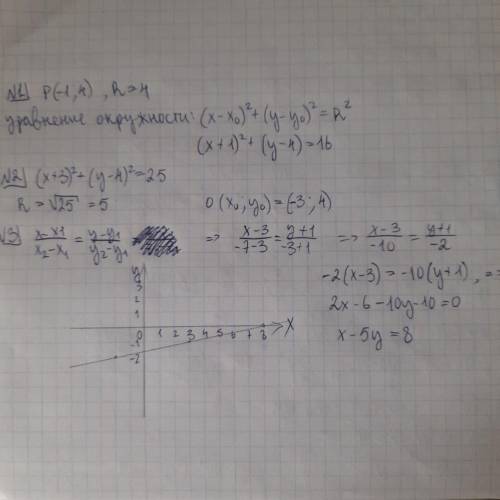 №1 P(-1,4) , R=4
уравнение окружности: (x-x₀)²+(y-y₀)²=R²
(x+1)²+(y-4)=16
№2 (x+3)²+(y-4)²=25
R=√25=5 O(x₀;y₀)=(-3;4)
№3 x-x1/x₂-x₁=y-y₁/y₂-y₁ => x-3/-7-3=y+1/-3+1 => x-3/-10=y+1/-2
-2(x-3)=-10(y+1), =>
2x-6-10y-10=0
x-5y=8
y
3
2
1
0 1 2 3 4 5 6 7 8 X
-1
-2